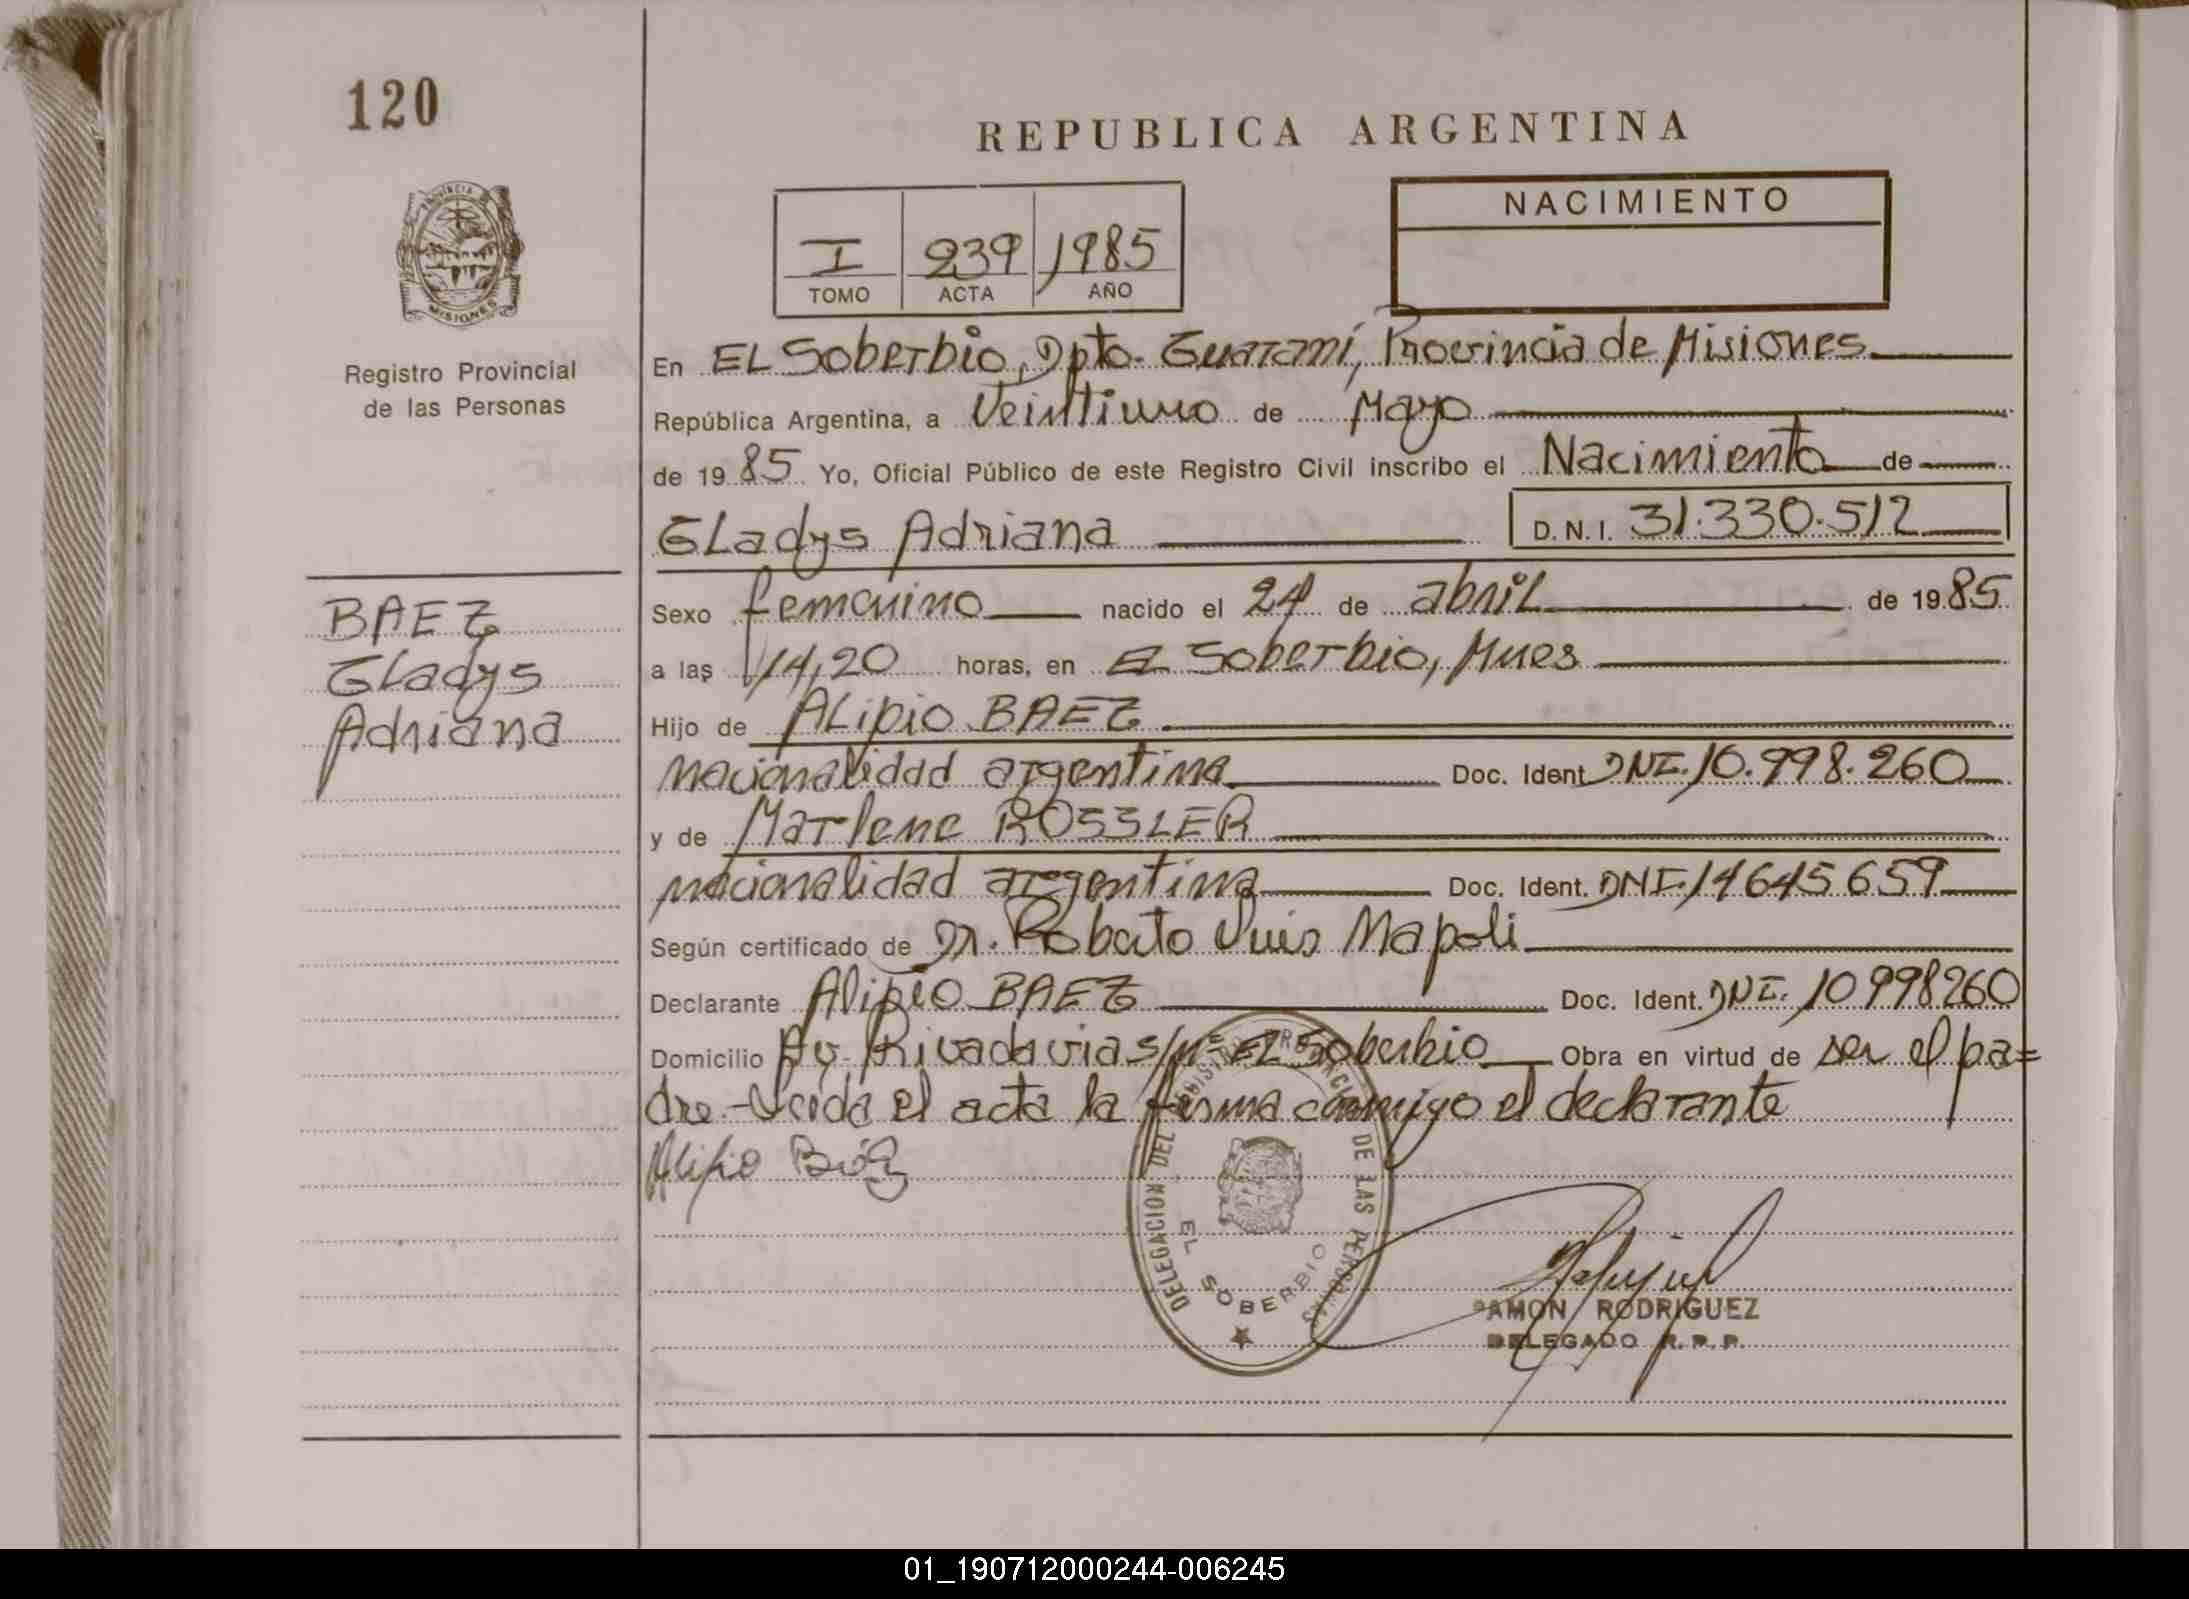 120
REPUBLICA ARGENTINA
NACIMIENTO
I 239 1985
TOMO ACTA AÑO
PROVINCIA DE MISIONES
Registro Provincial
de las Personas
En EL Soberbio, Dpto. Guaraní, Provincia de Misiones
República Argentina, a Veintiuno de Mayo
de 19 85 Yo, Oficial Público de este Registro Civil inscribo el Nacimiento de
Gladys Adriana D.N.I. 31.330.512
BAEZ
Gladys
Adriana
Sexo femenino nacido el 24 de abril de 19 85
a las 14,20 horas, en EL Soberbio, Mnes
Hijo de ALipio BAEZ
nacionalidad argentina Doc. Ident DNI. 10.998.260
y de Marlene ROSSLER
nacionalidad argentina Doc. Ident. DNI. 14645659
Según certificado de Dr. Roberto Luis Napoli
Declarante Alipio BAEZ Doc. Ident. DNI. 10998260
Domicilio Av. Rivadavia s/nº EL Soberbio Obra en virtud de ser el pa=
dre.- Leída el acta la firma conmigo el declarante
Alipio Báez
DELEGACION DEL REGISTRO PROVINCIAL DE LAS PERSONAS
EL SOBERBIO
RAMON RODRIGUEZ
DELEGADO R.P.P.
01_190712000244-006245